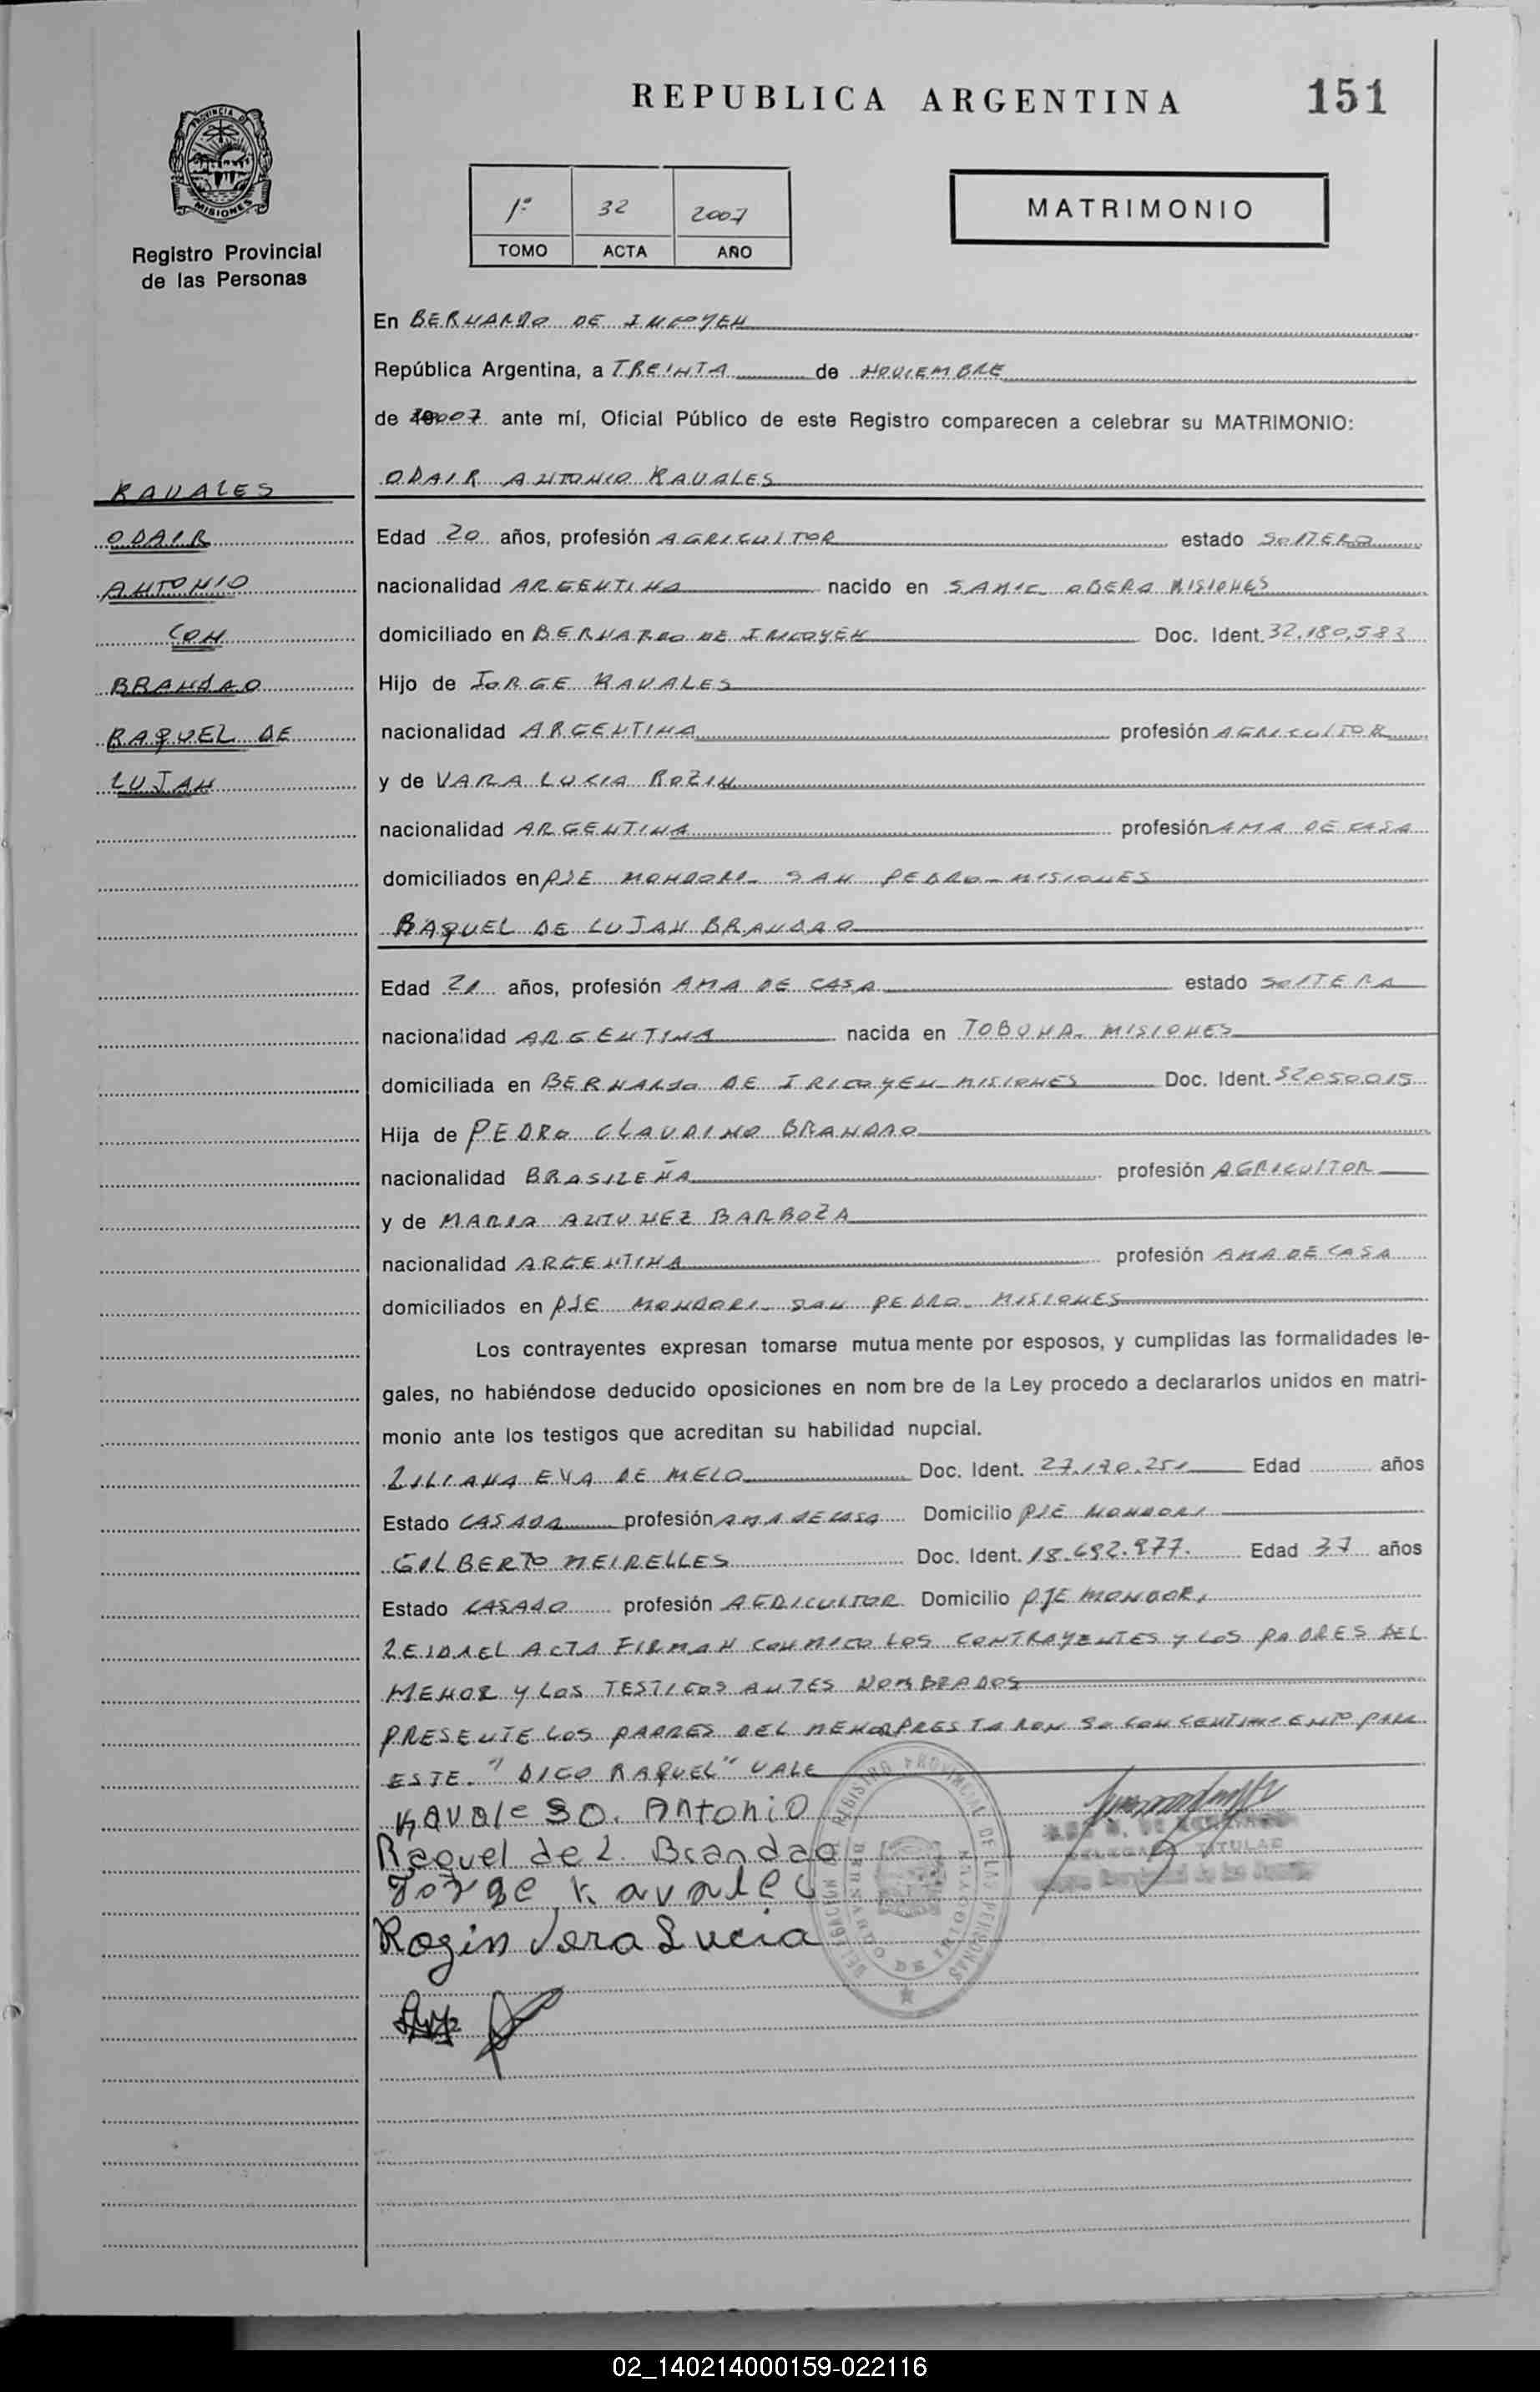 REPUBLICA ARGENTINA
151
PROVINCIA DE
MISIONES
Registro Provincial
de las Personas
1º 32 2007
TOMO ACTA AÑO
MATRIMONIO
En BERNARDO DE IRIGOYEN
República Argentina, a TREINTA de NOVIEMBRE
de 2007 ante mí, Oficial Público de este Registro comparecen a celebrar su MATRIMONIO:
KAVALES
ODAIR
ANTONIO
CON
BRANDAO
RAQUEL DE
LUJAN
ODAIR ANTONIO KAVALES
Edad 20 años, profesión AGRICULTOR estado SOLTERO
nacionalidad ARGENTINA nacido en SAMIC OBERA MISIONES
domiciliado en BERNARDO DE IRIGOYEN Doc. Ident. 32.180.583
Hijo de JORGE KAVALES
nacionalidad ARGENTINA profesión AGRICULTOR
y de VARA LUCIA ROZIN
nacionalidad ARGENTINA profesión AMA DE CASA
domiciliados en PJE MONDORI - SAN PEDRO - MISIONES
RAQUEL DE LUJAN BRANDAO
Edad 21 años, profesión AMA DE CASA estado SOLTERA
nacionalidad ARGENTINA nacida en TOBUNA - MISIONES
domiciliada en BERNARDO DE IRIGOYEN - MISIONES Doc. Ident. 32050015
Hija de PEDRO CLAUDINO BRANDAO
nacionalidad BRASILEÑA profesión AGRICULTOR
y de MARIA ANTUNEZ BARBOZA
nacionalidad ARGENTINA profesión AMA DE CASA
domiciliados en PJE MONDORI - SAN PEDRO - MISIONES
Los contrayentes expresan tomarse mutua mente por esposos, y cumplidas las formalidades le-
gales, no habiéndose deducido oposiciones en nom bre de la Ley procedo a declararlos unidos en matri-
monio ante los testigos que acreditan su habilidad nupcial.
LILIANA EVA DE MELO Doc. Ident. 27.170.251 Edad años
Estado CASADA profesión AMA DE CASA Domicilio PJE MONDORI
GILBERTO MEIRELLES Doc. Ident. 18.692.977. Edad 37 años
Estado CASADO profesión AGRICULTOR Domicilio PJE MONDORI
LEIDA EL ACTA FIRMAN CONMIGO LOS CONTRAYENTES Y LOS PADRES DEL
MENOR Y LOS TESTIGOS ANTES NOMBRADOS
PRESENTE LOS PADRES DEL MENOR PRESTARON SU CONCENTIMIENTO PARA
ESTE. "DIGO RAQUEL" VALE
Kavales O. Antonio
Raquel de L. Brandao
Jorge Kavales
Rozin Vera Lucia
DELEGACION REGISTRO PROVINCIAL DE LAS PERSONAS
BERNARDO DE IRIGOYEN
TITULAR
02_140214000159-022116